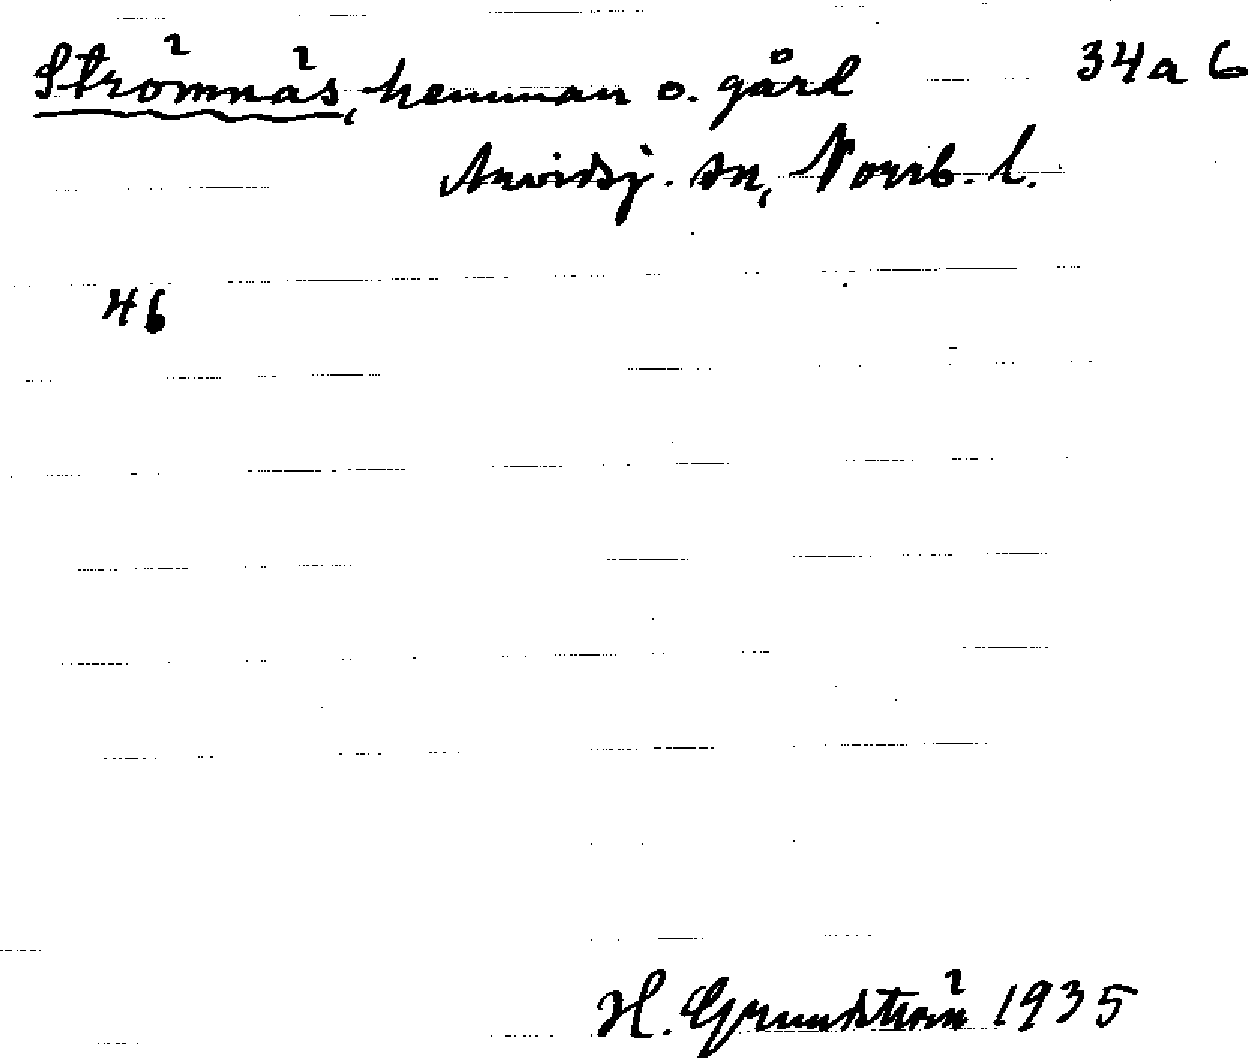 Strömnäs, hemman o. gård 34a6
Arvidsj. sn, Norrb. l.
46
H. Grundström 1935